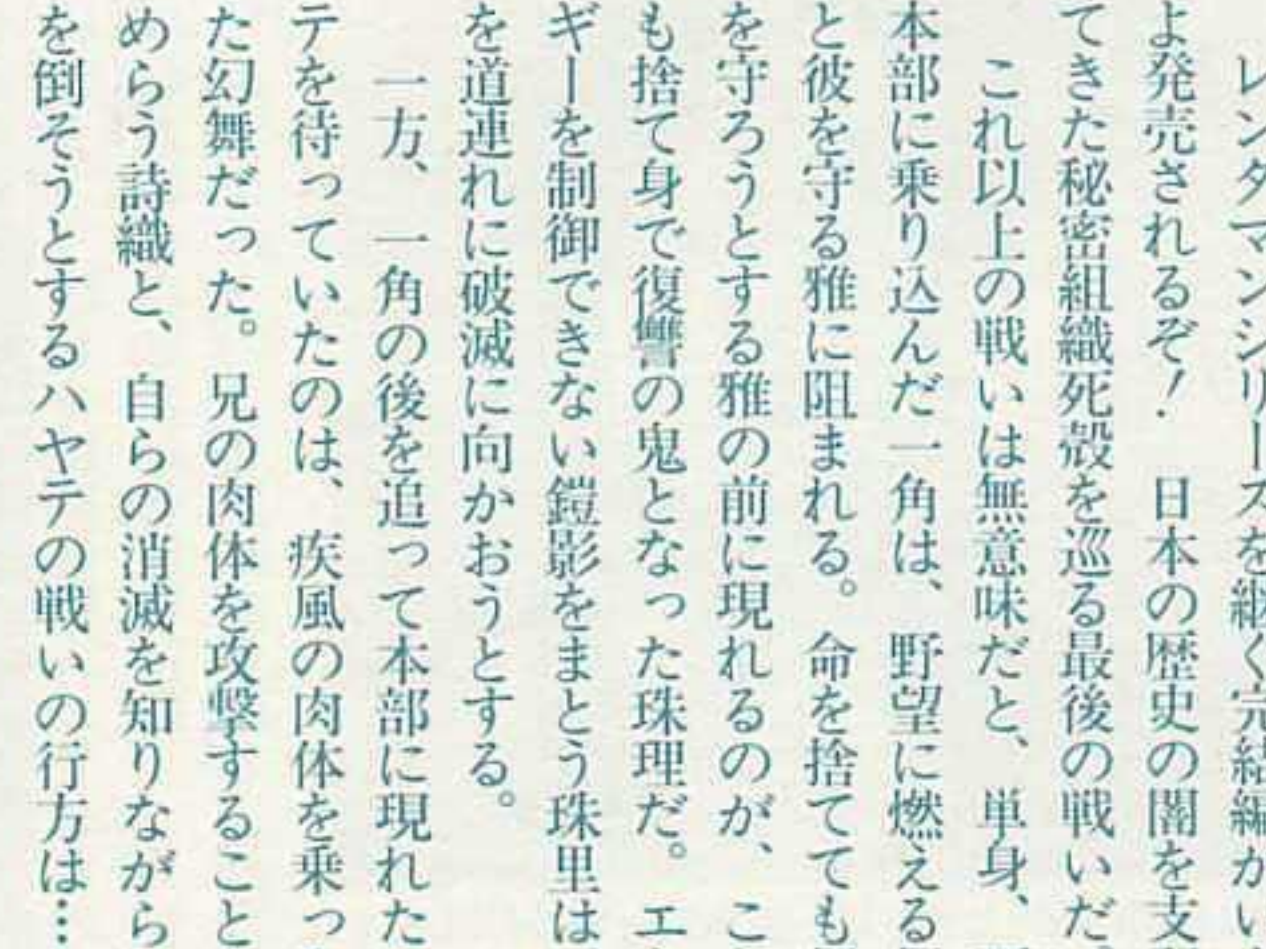 レンタマンシリーズを継ぐ完結編がい
よ発売されるぞ! 日本の歴史の闇を支
てきた秘密組織死殻を巡る最後の戦いだ
これ以上の戦いは無意味だと、単身、
本部に乗り込んだ一角は、野望に燃える
と彼を守る雅に阻まれる。命を捨てても
を守ろうとする雅の前に現れるのが、こ
も捨て身で復讐の鬼となった珠理だ。エ
ギーを制御できない鎧影をまとう珠里は
を道連れに破滅に向かおうとする。
一方、一角の後を追って本部に現れた
テを待っていたのは、疾風の肉体を乗っ
た幻舞だった。兄の肉体を攻撃すること
めらう詩織と、自らの消滅を知りながら
を倒そうとするハヤテの戦いの行方は…